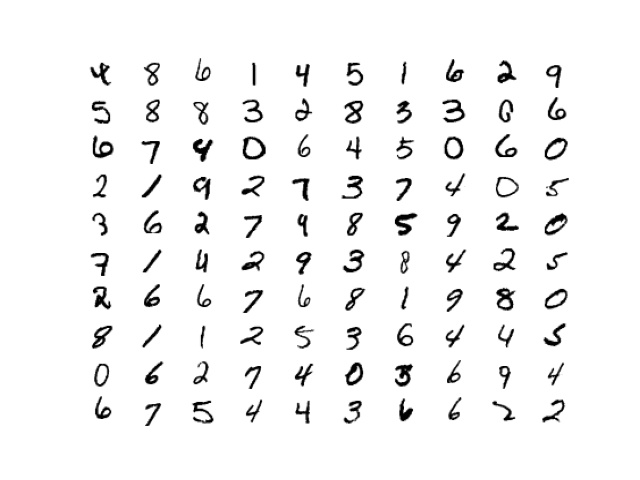 4 8 6 1 4 5 1 6 2 9
5 8 8 3 2 8 3 3 6 6
6 7 9 0 6 4 5 0 6 0
2 1 9 2 7 3 7 4 0 5
3 6 2 7 9 8 5 9 2 0
7 1 4 2 9 3 8 4 2 5
2 6 6 7 6 8 1 9 8 0
8 1 1 2 5 3 6 4 4 5
0 6 2 7 4 0 3 6 9 4
6 7 5 4 4 3 6 6 2 2